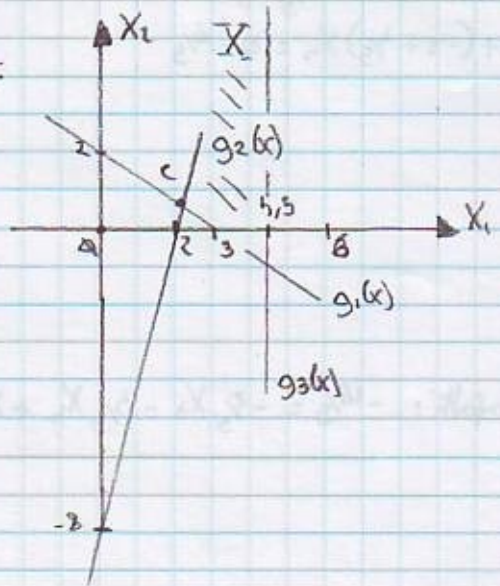 X₂
X
g₂(x)
2
c
4,5
X₁
2
3
6
g₁(x)
g₃(x)
-8